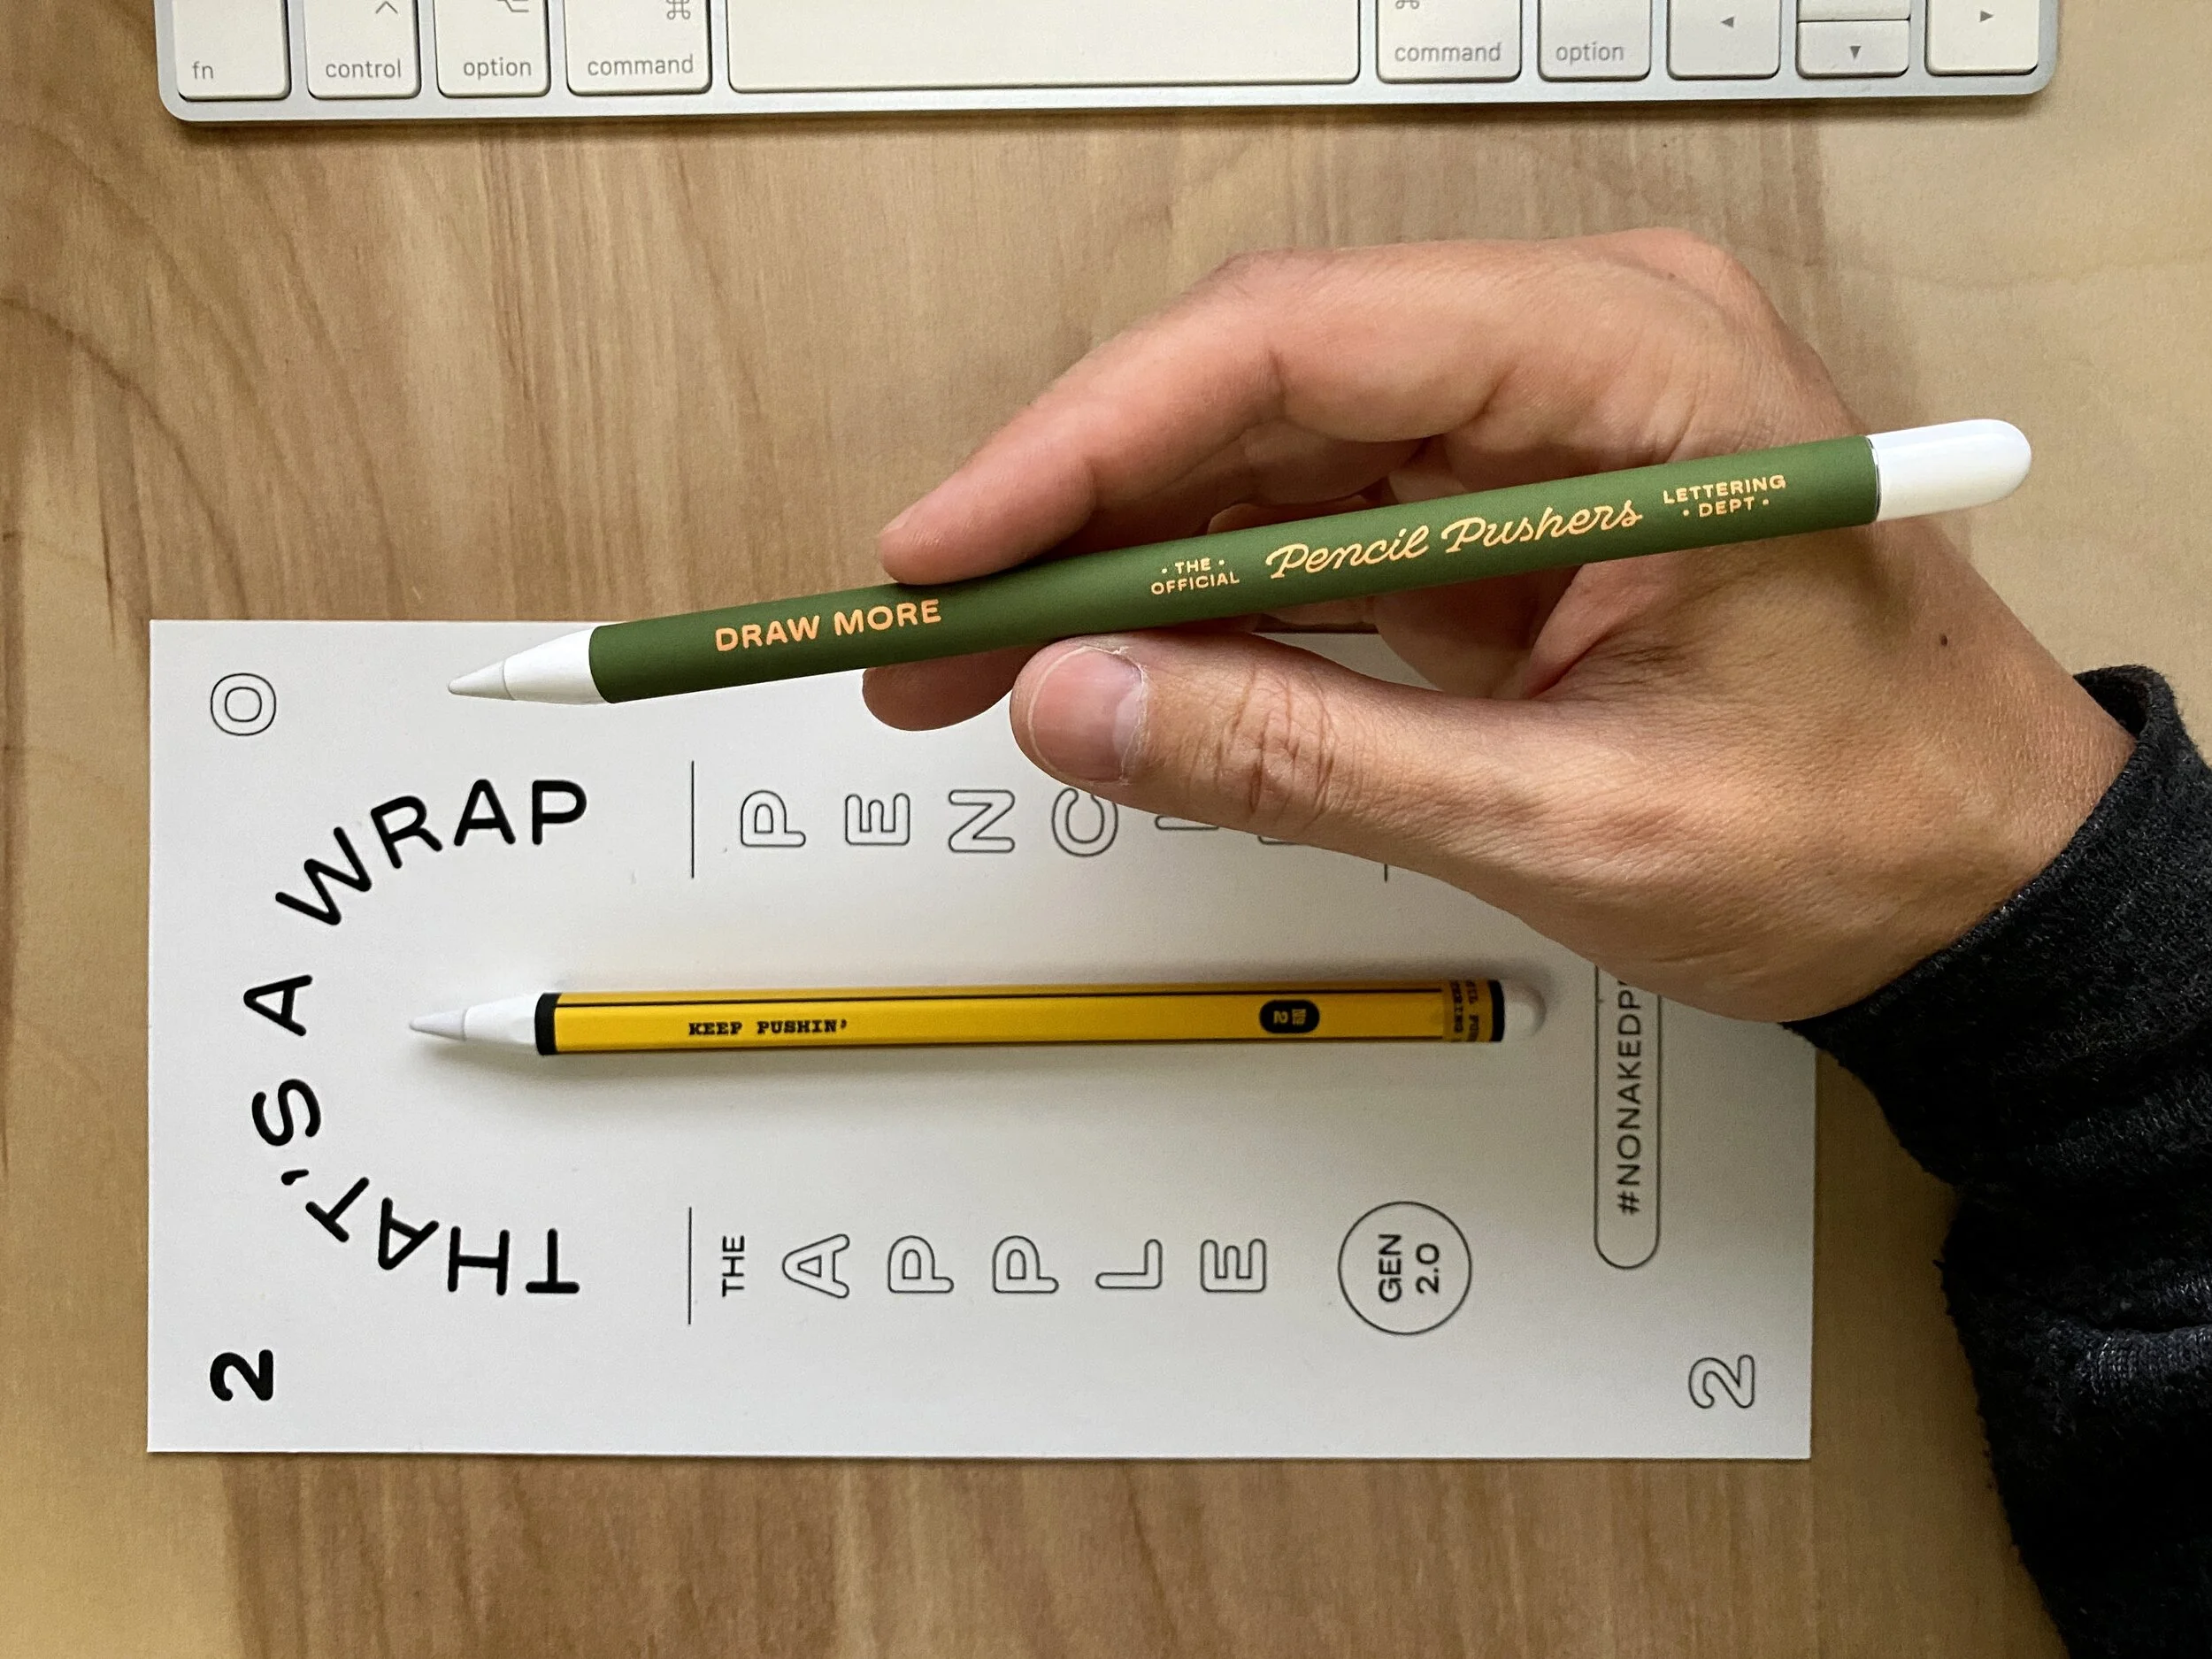 fn
control
option
command
command
option
DRAW MORE
• THE •
OFFICIAL
Pencil Pushers
LETTERING
• DEPT •
O
THAT'S A WRAP
2
KEEP PUSHIN'
Nº
2
THE
APPLE
GEN
2.0
2